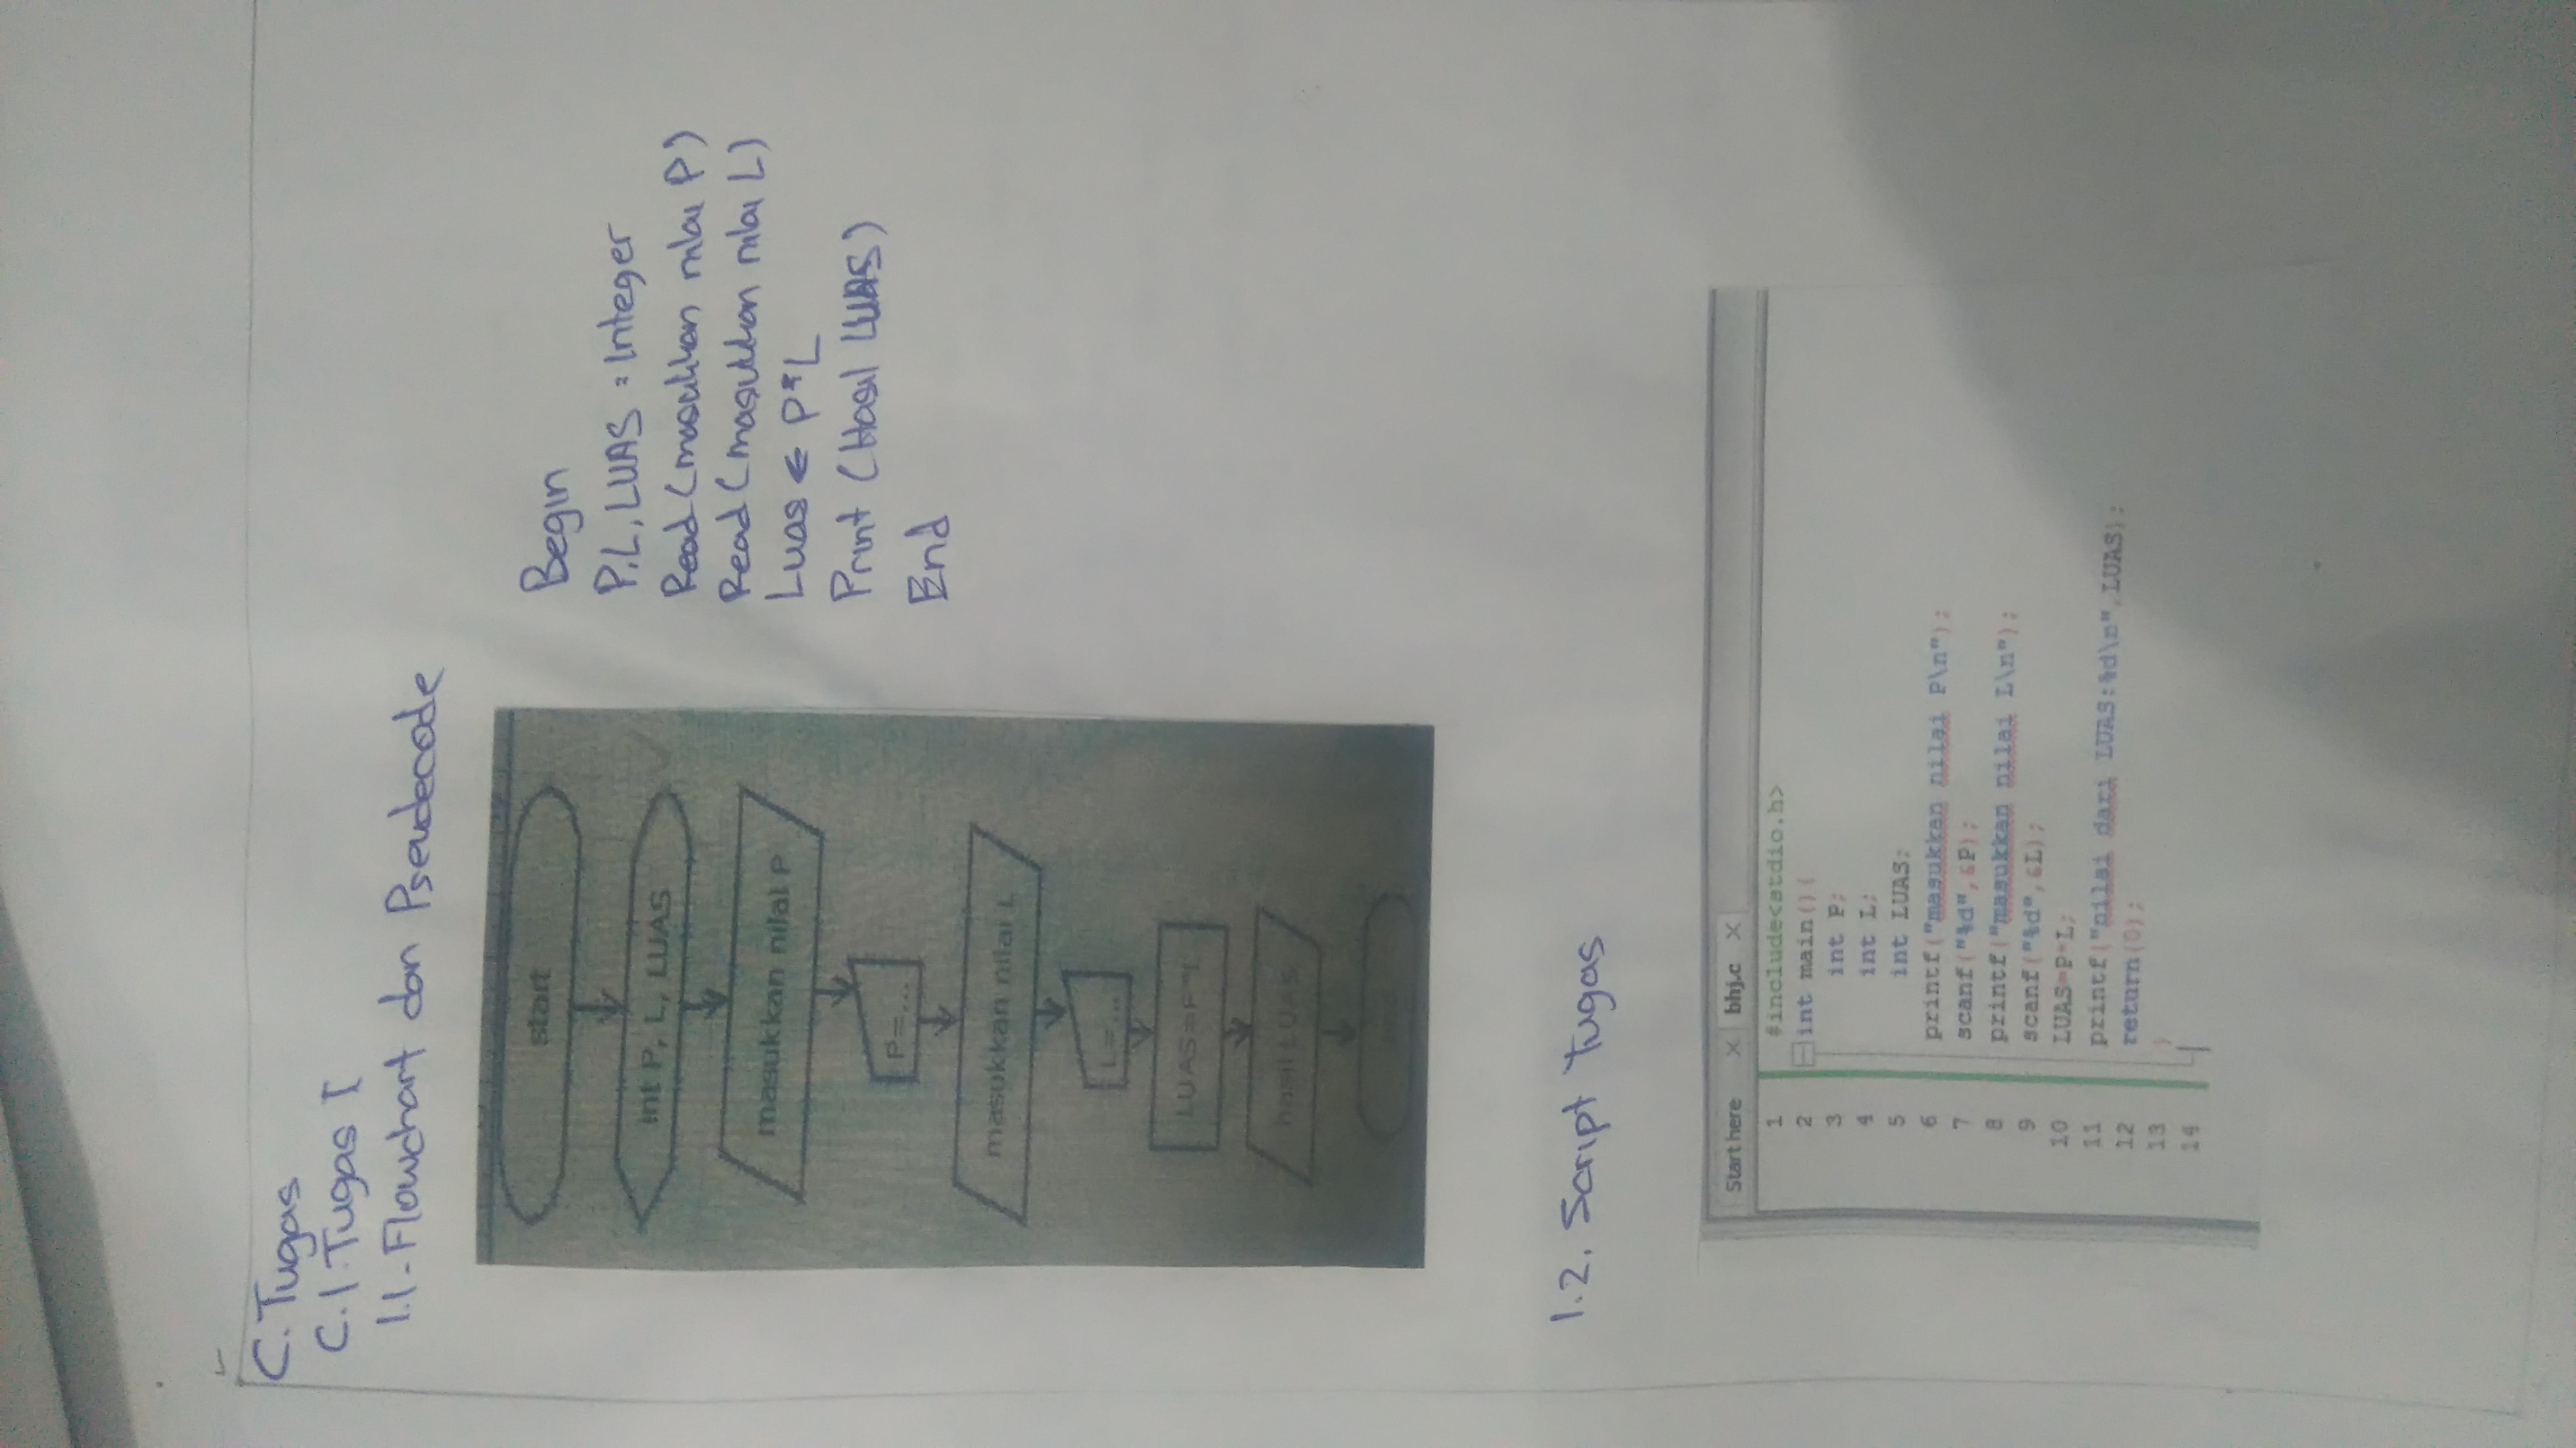 C. Tugas
C.1 Tugas I
1.1-Flowchart dan Pseudecode
start
int P, L, LUAS
masukkan nilai P
P=....
masukkan nilai L
L=....
LUAS=P*L
hasil LUAS
Begin
P, L, LUAS : Integer
Read (masukkan nilai P)
Read (masukkan nilai L)
Luas ← P*L
Print (Hasil LUAS)
End
1.2. Script Tugas
Start here X bhj.c X
1 #include<stdio.h>
2 int main(){
3 int P;
4 int L;
5 int LUAS;
6 printf("masukkan nilai P\n");
7 scanf("%d",&P);
8 printf("masukkan nilai L\n");
9 scanf("%d",&L);
10 LUAS=P*L;
11 printf("nilai dari LUAS:%d\n",LUAS);
12 return(0);
13 }
14